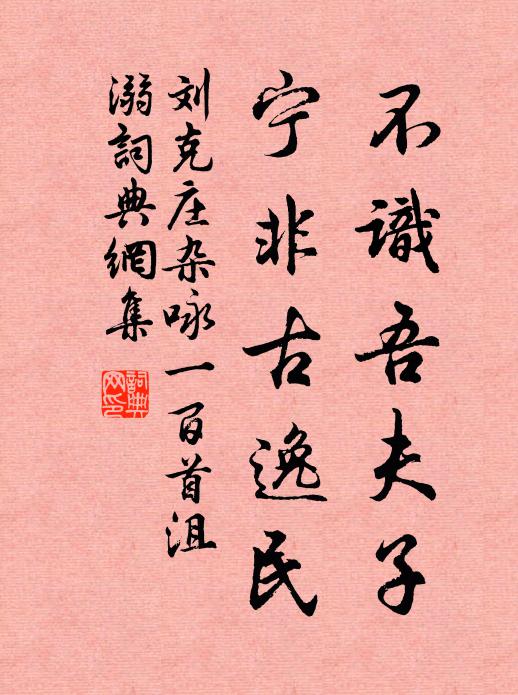 不識吾夫子
宁非古逸民
刘克庄杂咏一百首沮
溺詞典網集
詞典
网印